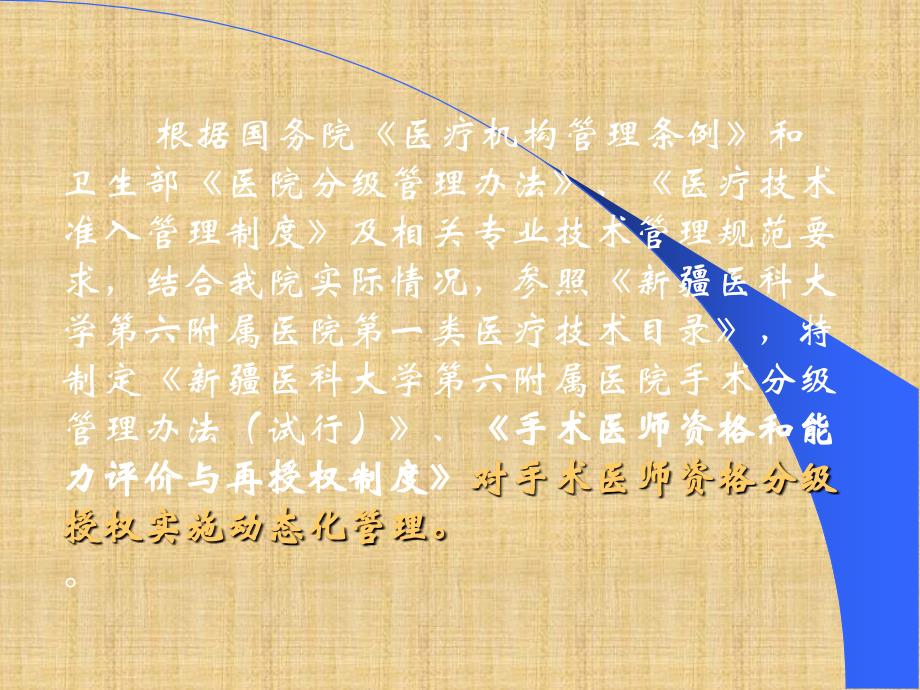 根据国务院《医疗机构管理条例》和
卫生部《医院分级管理办法》、《医疗技术
准入管理制度》及相关专业技术管理规范要
求，结合我院实际情况，参照《新疆医科大
学第六附属医院第一类医疗技术目录》，特
制定《新疆医科大学第六附属医院手术分级
管理办法（试行）》、《手术医师资格和能
力评价与再授权制度》对手术医师资格分级
授权实施动态化管理。
。